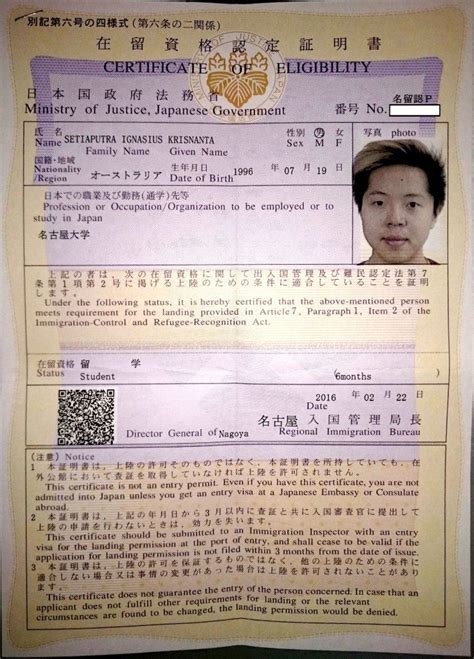 別記第六号の四様式（第六条の二関係）
在留資格認定証明書
CERTIFICATE OF ELIGIBILITY
日本国政府法務省
Ministry of Justice, Japanese Government
番号 No.
名留認P
氏名 Name SETIAPUTRA IGNASIUS KRISNANTA
Family Name Given Name
性別 男 女
Sex M F
写真 photo
国籍・地域
Nationality/Region オーストラリア
生年月日
Date of Birth 1996 07月 19日
日本での職業及び勤務（通学）先等
Profession or Occupation/Organization to be employed or to
study in Japan
名古屋大学
上記の者は、次の在留資格に関して出入国管理及び難民認定法第7
条第1項第2号に掲げる上陸のための条件に適合していることを証明
します。
Under the following status, it is hereby certified that the above-mentioned person
meets requirement for the landing provided in Article 7, Paragraph 1, Item 2 of the
Immigration-Control and Refugee-Recognition Act.
在留資格 留 学
Status Student (6months)
2016 年 02 月 22 日
Date
名古屋 入国管理局長
Director General of Nagoya Regional Immigration Bureau
（注意）Notice
1 本証明書は、上陸の許可そのものではなく、本証明書を所持していても、在
外公館において査証を取得していなければ上陸を許可されません。
This certificate is not an entry permit. Even if you have this certificate, you are not
admitted into Japan unless you get an entry visa at a Japanese Embassy or Consulate
abroad.
2 本証明書は、上記の年月日から3月以内に査証と共に入国審査官に提出して
上陸の申請を行わないときは、効力を失います。
This certificate should be submitted to an Immigration Inspector with an entry
visa for the landing permission at the port of entry, and shall cease to be valid if the
application for landing permission is not filed within 3 months from the date of issue.
3 本証明書は、上陸の許可を保証するものではなく、他の上陸のための条件に
適合しない場合又は事情の変更があった場合は上陸を許可されないことがあり
ます。
This certificate does not guarantee the entry of the person concerned. In case that an
applicant does not fulfill other requirements for landing or the relevant
circumstances are found to be changed, the landing permission would be denied.